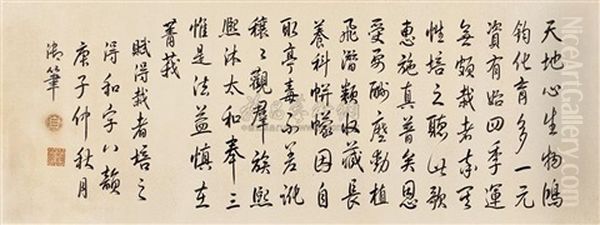 天地心生物鴻
鈞化育多一元
資有始四季運
無頗栽者
性培之聽此歌
惠施真普矣恩
受酬麼動植
飛潛類收藏長
養科帡幪因自
取亭毒不差訛
穰〻觀羣族熙
熙沐太和奉三
惟是法益慎在
菁莪
賦得栽者培之
得和字八韻
庚子仲秋月
御筆